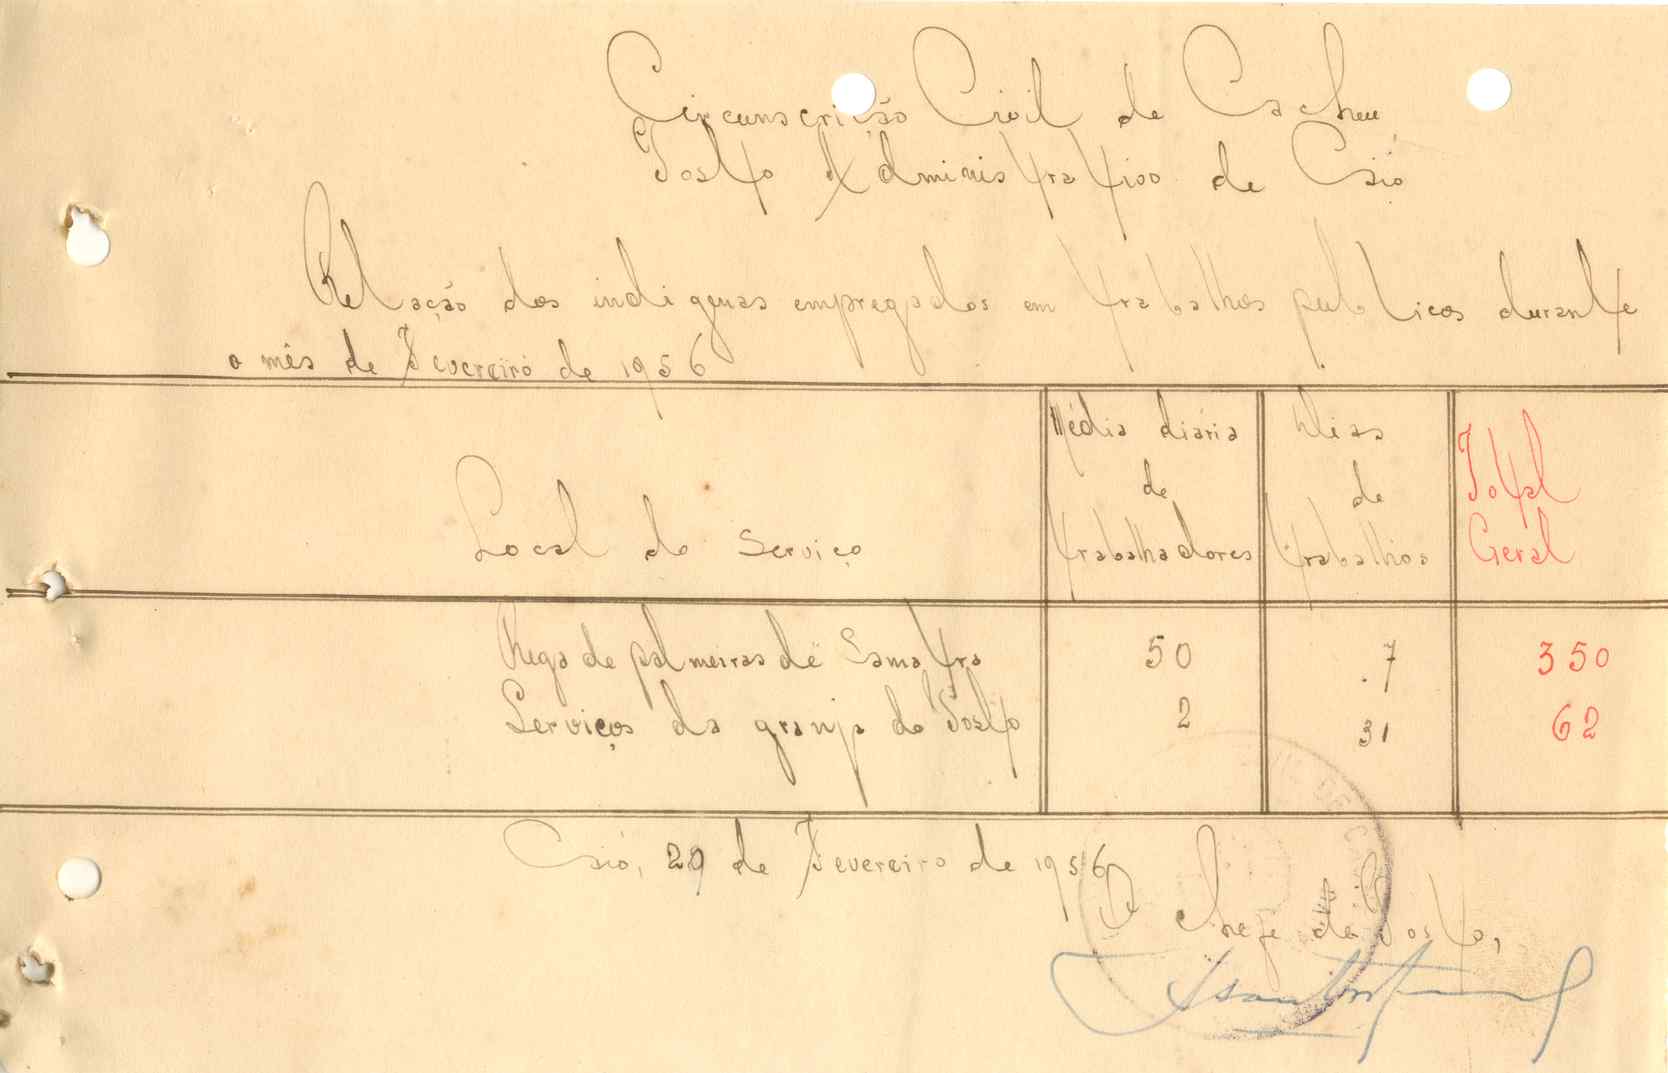 Circunscrição Civil de Cacheu
Posto Administrativo de Caió
Relação dos indigenas empregados em trabalhos publicos durante
o mês de Fevereiro de 1956
Local do serviço
Média diária de trabalhadores
Dias de trabalhos
Total Geral
Rega de palmeiras de Samatra 50 7 350
Serviços da granja do Posto 2 31 62
Caió, 29 de Fevereiro de 1956
O Chefe do Posto,